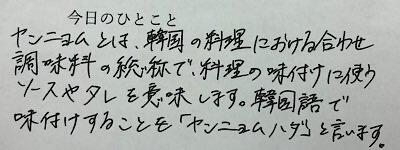 今日のひとこと
ヤンニョムとは、韓国の料理における合わせ
調味料の総称で、料理の味付けに使う
ソースやタレを意味します。韓国語で
味付けすることを「ヤンニョムハダ」と言います。